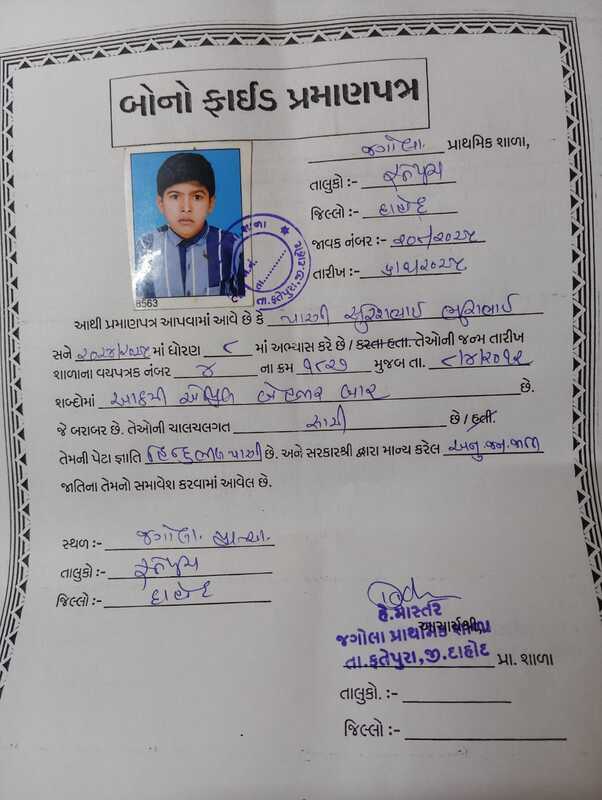 બોનો ફાઈડ પ્રમાણપત્ર
જગોલા પ્રાથમિક શાળા,
તાલુકો :- ફતેપુરા
જિલ્લો :- દાહોદ
જાવક નંબર :- ૨૦૫/૨૦૨૫
તારીખ :- ૫/૨/૨૦૨૫
8563
આથી પ્રમાણપત્ર આપવામાં આવે છે કે પારગી સુરેશભાઈ ભુરાભાઈ
સને ૨૦૨૪/૨૦૨૫ માં ધોરણ ૮ માં અભ્યાસ કરે છે / કરતા હતા. તેઓની જન્મ તારીખ
શાળાના વયપત્રક નંબર ૪ ના ક્રમ ૧૮૨૭ મુજબ તા. ૮/૪/૨૦૧૨
શબ્દોમાં આઠમી એપ્રિલ બે હજાર બાર છે.
જે બરાબર છે. તેઓની ચાલચલગત સારી છે / હતી.
તેમની પેટા જ્ઞાતિ હિન્દુ ભીલ પારગી છે. અને સરકારશ્રી દ્વારા માન્ય કરેલ અનુ.જન.જાતિ
જાતિના તેમનો સમાવેશ કરવામાં આવેલ છે.
સ્થળ :- જગોલા
તાલુકો :- ફતેપુરા
જિલ્લો :- દાહોદ
હે.માસ્તર
આચાર્યશ્રી,
જગોલા પ્રાથમિક શાળા
તા.ફતેપુરા,જી.દાહોદ પ્રા. શાળા
તાલુકો. :-
જિલ્લો :-